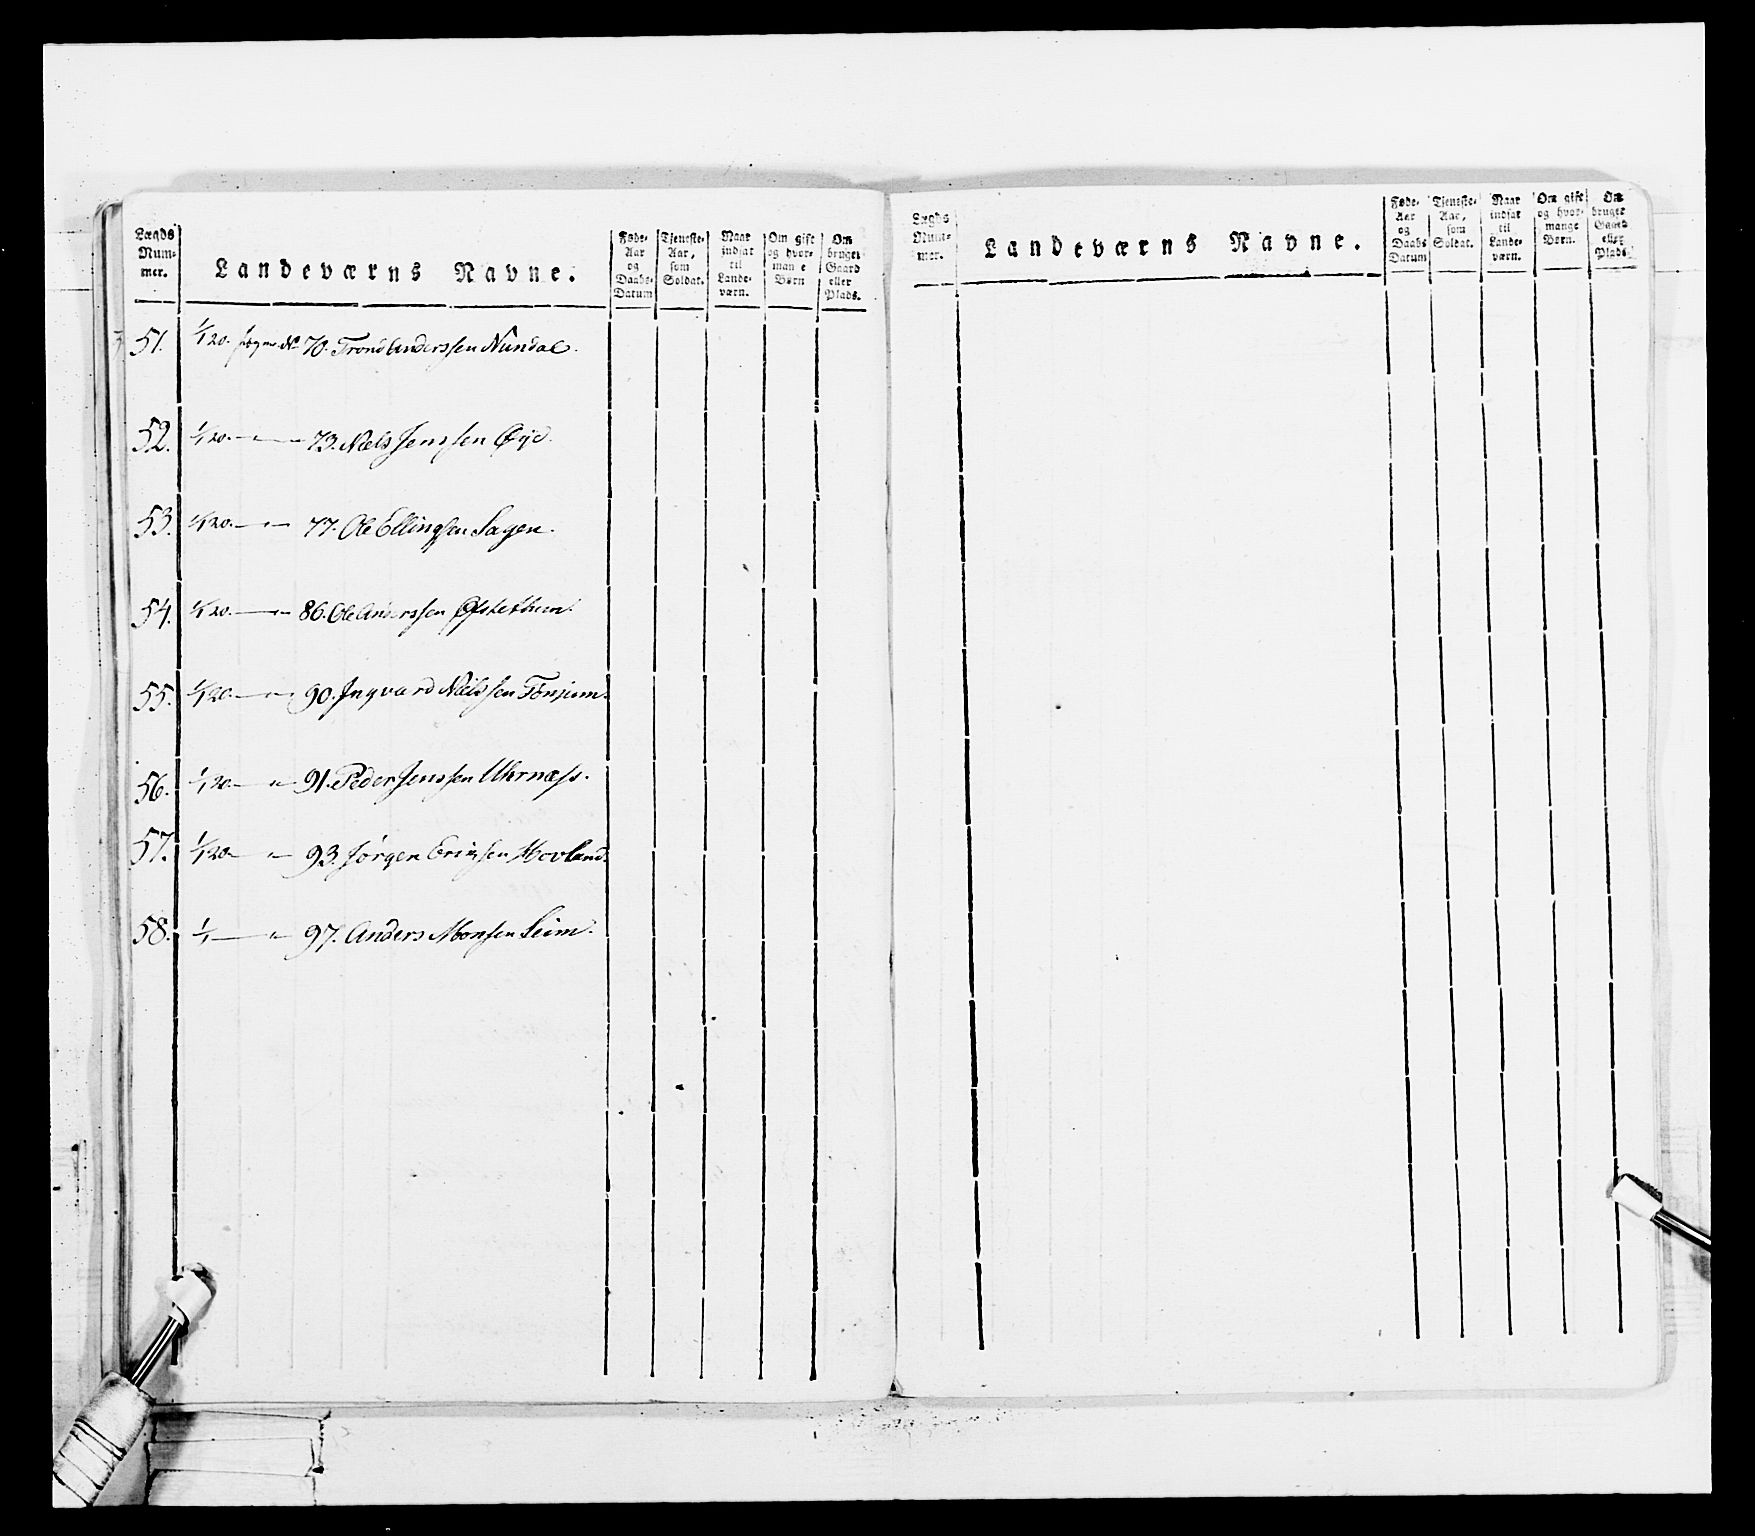 Lægds Num- mer.
Landeværns Navne.
Føde- Aar og Daabs- Datum
Tjeneste- Aar, som Soldat.
Naar indsat til Lande- værn.
Om gift og hvor- man e Børn
Om bruger Gaard eller Plads.
51. 1/120. No 70. Trond Anderssen Nundal.
52. 1/120. — " — 73. Niels Jenssen Øye.
53. 1/120. — " — 77. Ole Ellingsen Sagen.
54. 1/120. — " — 86. Ole Anderssen Ofstethun.
55. 1/120. — " — 90. Ingvard Nielssen Tønjum.
56. 1/120. — " — 91. Peder Jenssen Uhrnæss.
57. 1/120. — " — 93. Jørgen Erichsen Hovland.
58. 1/1 — " — 97. Anders Monsen Seim.
Lægds Num- mer.
Landeværns Navne.
Føde- Aar og Daabs Datum
Tjeneste- Aar, som Soldat.
Naar indsat til Lande- værn.
Om gift og hvor- mange Børn.
Om bruger Gaard eller Plads.